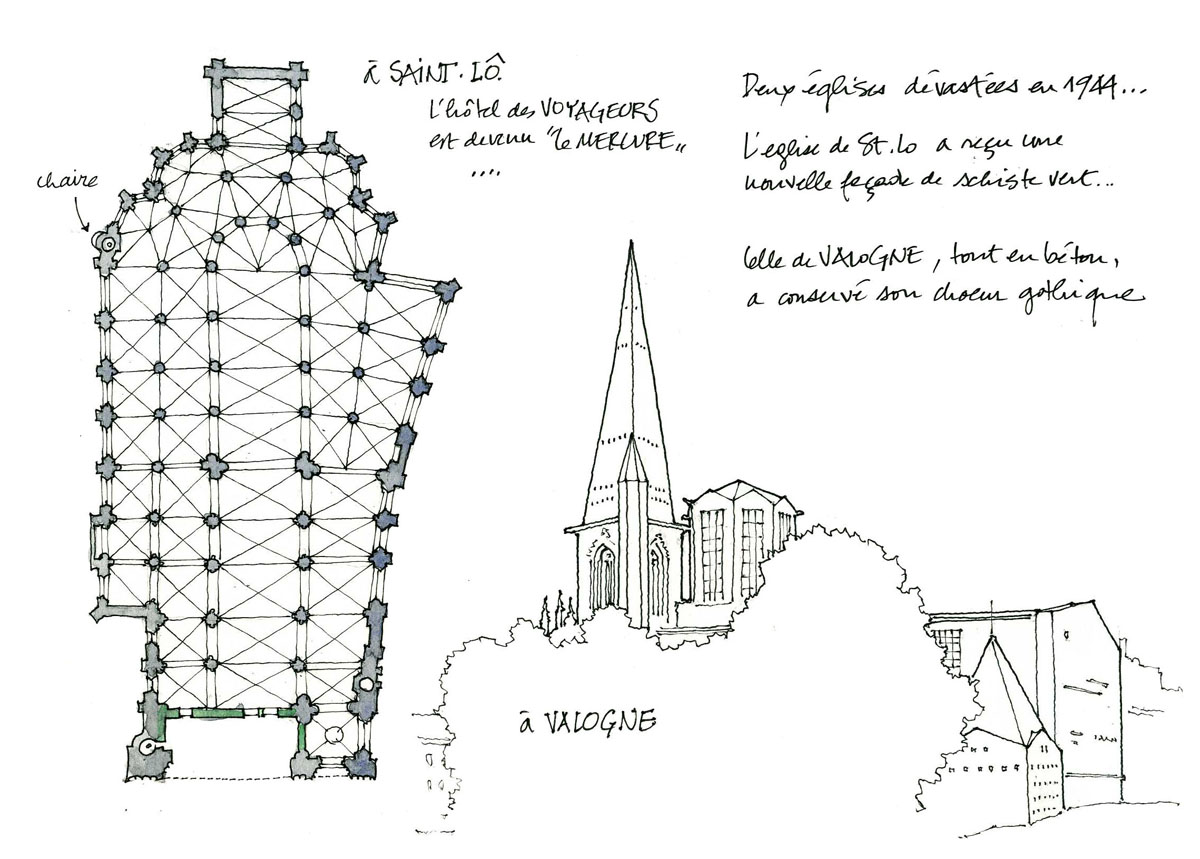 à SAINT. LÔ.
L'hôtel des VOYAGEURS
est devenu "le MERCURE"
....
chaire
Deux églises dévastées en 1944...
L'eglise de St. Lo a reçu une
nouvelle façade de schiste vert...
Celle de VALOGNE, tout en béton,
a conservé son choeur gothique
à VALOGNE